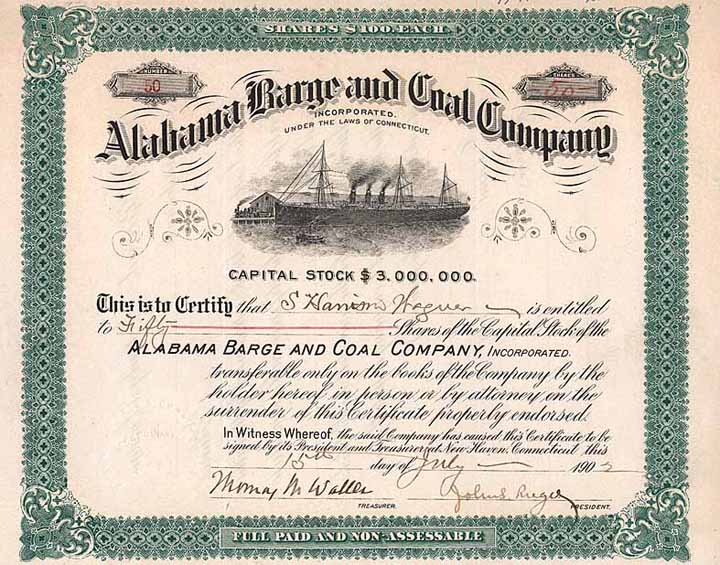 SHARES $100. EACH
NUMBER
50
SHARES
50
Alabama Barge and Coal Company
INCORPORATED.
UNDER THE LAWS OF CONNECTICUT.
CAPITAL STOCK $ 3,000,000.
This is to Certify that S Harrison Wagner is entitled
to Fifty Shares of the Capital Stock of the
ALABAMA BARGE AND COAL COMPANY, INCORPORATED.
transferable only on the books of the Company by the
holder hereof in person or by attorney on the
surrender of this Certificate properly endorsed.
In Witness Whereof, the said Company has caused this Certificate to be
signed by its President and Treasurer at New Haven, Connecticut this
15th day of July 1902
Thomas M Waller
TREASURER.
PRESIDENT.
FULL PAID AND NON-ASSESSABLE